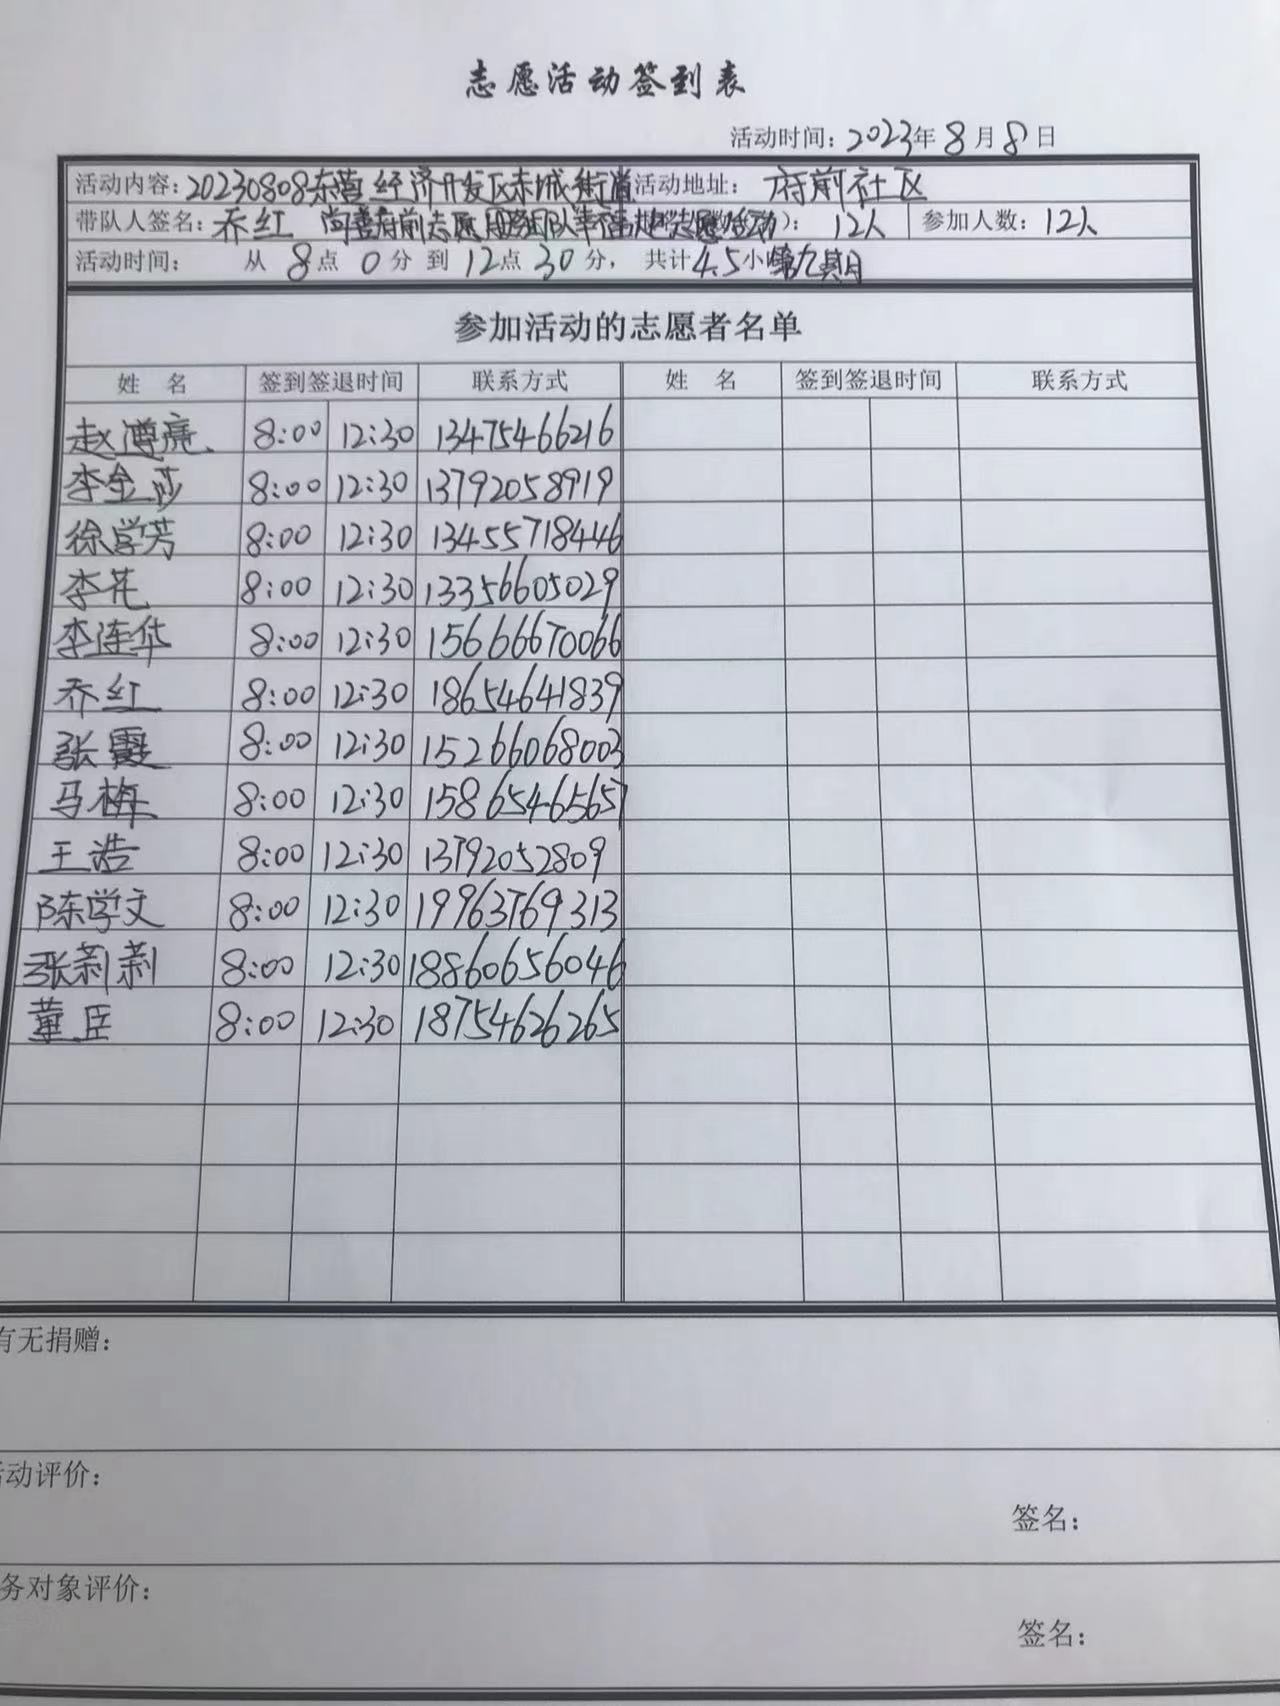 志愿活动签到表
活动时间：2023年8月8日
活动内容：20230808东营经济开发区东城街道 活动地址： 府前社区
带队人签名：乔红 尚善府前志愿服务团队 志愿活动）： 12人 参加人数：12人
活动时间： 从 8点 0分 到 12点 30分， 共计4.5小 第九期
参加活动的志愿者名单
姓 名 签到签退时间 联系方式 姓 名 签到签退时间 联系方式
赵博亮 8:00 12:30 13475466216
李金莎 8:00 12:30 13792058919
徐学芳 8:00 12:30 13455718446
李花 8:00 12:30 13356605029
李连华 8:00 12:30 15666670066
乔红 8:00 12:30 18654641839
张霞 8:00 12:30 15266068003
马梅 8:00 12:30 15865465657
王浩 8:00 12:30 13792052809
陈学文 8:00 12:30 19963769313
张莉莉 8:00 12:30 18860656046
董臣 8:00 12:30 18754626265
有无捐赠：
活动评价：
签名：
务对象评价：
签名：